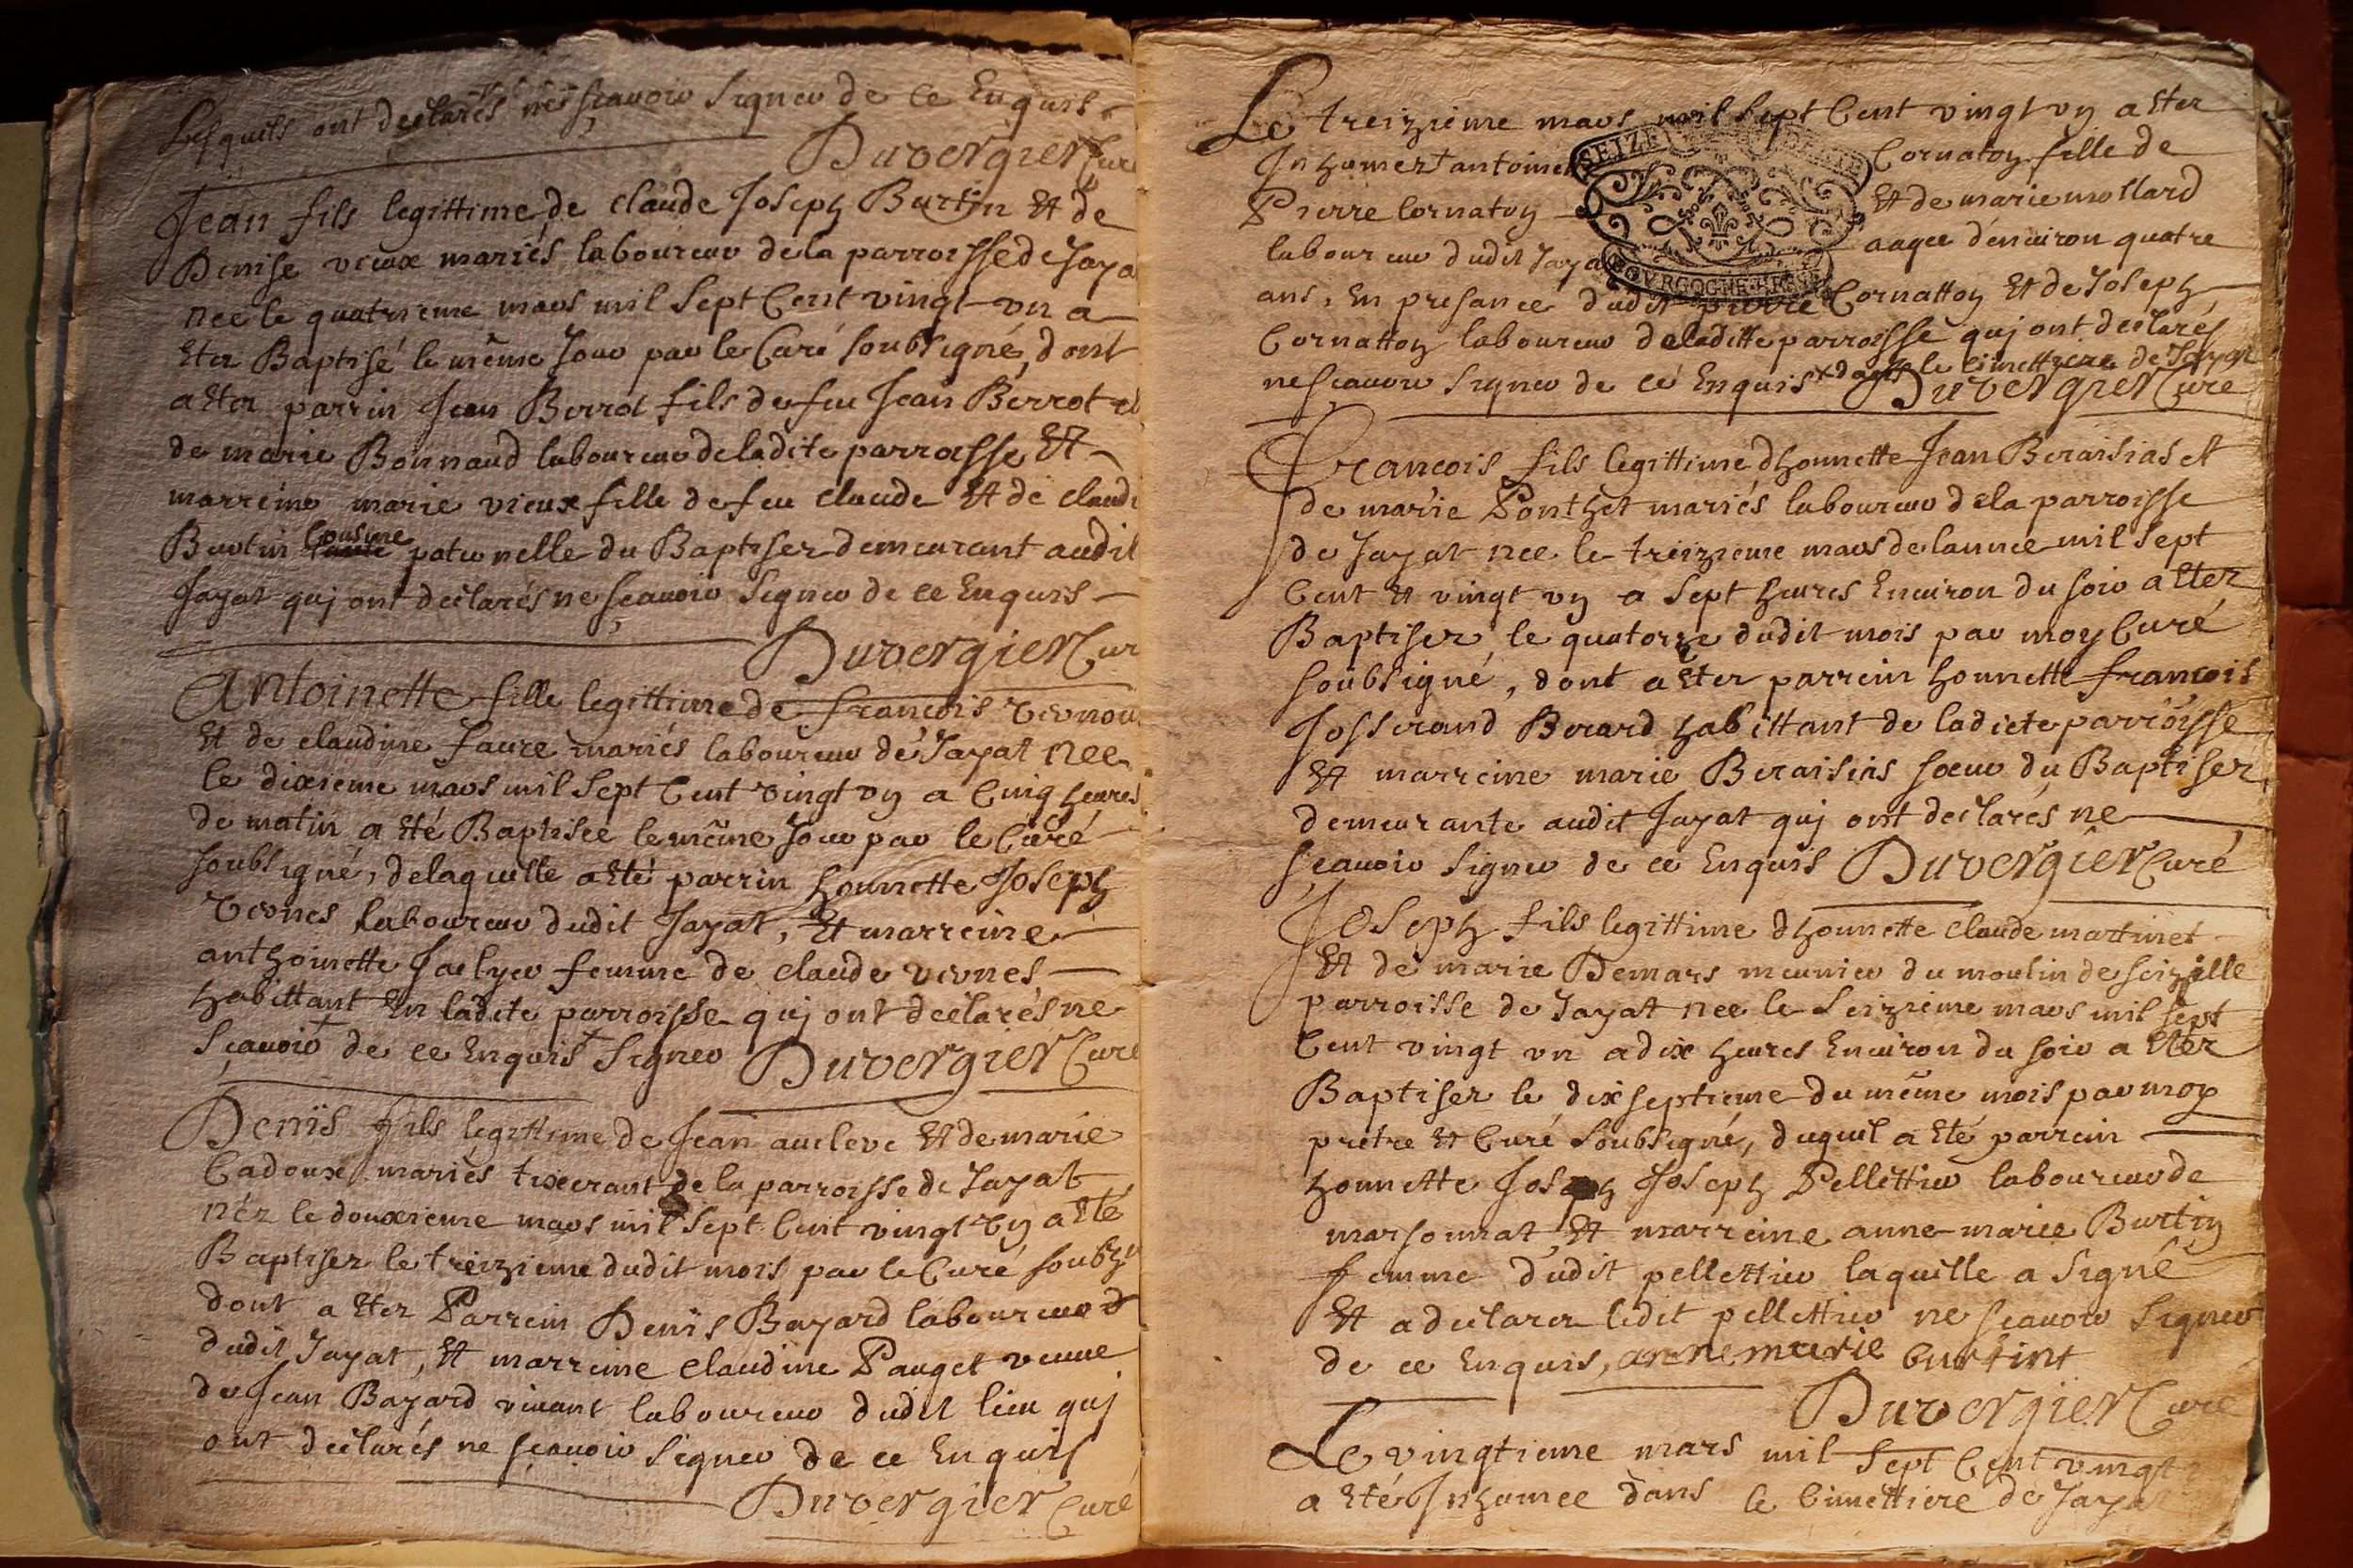 Lesquels ont declarés ne sçavoir signer de ce Enquis
Duvergier Cur
Jean fils legittime de claude Joseph Burtin Et de
Denise vieux mariés laboureur de la parroisse de Jaya
nee le quatrieme mars mil Sept Cent vingt-vn a
Eter Baptisé le même Jour par le Curé soubsigné, dont
a Eter parrin Jean Berrot fils de feu Jean Berrot et
de marie Bonnaud laboureur de ladite parroisse Et
marreine marie vieux fille de feu claude Et de claudi
Burtin Cousine paternelle du Baptiser demeurant audit
Jayat quj ont declarés ne sçavoir Signer de ce Enquis
Duvergier Cur
Antoinette fille legittime de francois
Et de claudine faure mariés laboureur de Jayat nee
le dixieme mars mil Sept Cent vingt vn a Cinq heures
de matin a Eté Baptisée le même Jour par le Curé
soubsigné, delaquelle a Eté parrin honnette Joseph
vernes laboureur dudit Jayat, Et marreine
anthoinette Jaelyer femme de claude vernes
habittant En ladite parroisse quj ont declarés ne
Sçavoir de ce Enquis Signer Duvergier Curé
Deniis fils legittime de Jean aucleve Et de marie
Cadoux mariés tixerant de la parroisse de Jayat
néz le douxieme mars mil Sept Cent vingt vn a Eté
Baptiser le treizieme dudit mois par le Curé soubz
dont a Eter Parrein Deniis Bayard laboureur
dudit Jayat, Et marreine claudine Pauget veuue
de Jean Bayard viuant laboureur dudit lieu quj
ont declarés ne sçauoir Signer de ce Enquis
Duvergier Curé
Le treizieme mars mil Sept Cent vingt vn a Eter
Inhumez antoine Cornaton fille de
Pierre Cornaton Et de marie mollard
laboureur dudit Jaya aagee d'enuiron quatre
ans, En presance dudit pierre Cornatton Et de Joseph
Cornatton laboureur de laditte parroisse quj ont declarés
dans le cimettiere de Jayat
ne scauoir Signer de ce Enquis Duvergier Curé
Francois fils legittime d'honnette Jean Beraisias et
de marie Ponthet mariés laboureur dela parroisse
de Jayat nee le treizieme mars de lannee mil Sept
Cent Et vingt vn a Sept heures Enuiron du soir a Eter
Baptiser, le quatorze dudit mois par moy Curé
soubsigné, dont a Eter parrein honnette francois
Josserand Berard habittant de ladicte parroisse
Et marreine marie Beraisias soeur du Baptiser
demeurante audit Jayat quj ont declarés ne
sçauoir Signer de ce Enquis Duvergier Curé
Joseph fils legittime d'honnette claude martinet
Et de marie Demars meunier du moulin de seizille
parroisse de Jayat nee le Seizieme mars mil sept
Cent vingt vn a dix heures Enuiron du soir a Eter
Baptiser le dix septieme du même mois par moy
prétre Et Curé Soubsigné, duquel a Eté parrein
honnette Joseph Pellettier laboureur de
marsonnat Et marreine anne-marie Burtin
femme dudit pellettier laquelle a Signé
Et a declarer ledit pellettier ne sçauoir Signer
de ce Enquis, anne marie burtint
Duvergier Curé
Le vingtieme mars mil Sept Cent vingt
a Eté Inhumee dans le Cimettiere de Jaya